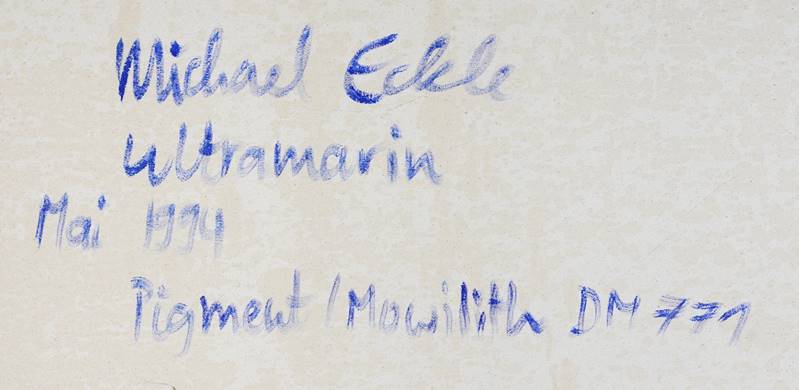 Michael Eckle
Ultramarin
Mai 1994
Pigment / Mowilith DM 771